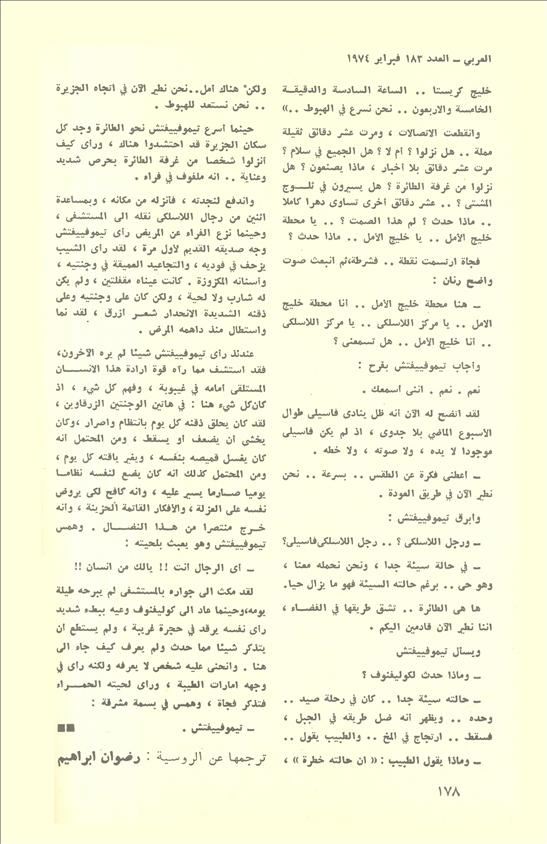 العربي – العدد ١٨٣ فبراير ١٩٧٤
خليج كريستا .. الساعة السادسة والدقيقة
الخامسة والاربعون .. نحن نسرع في الهبوط ..»
وانقطعت الاتصالات ، ومرت عشر دقائق ثقيلة
مملة .. هل نزلوا ؟ ام لا ؟ هل الجميع في سلام ؟
مرت عشر دقائق بلا اخبار ، ماذا يصنعون ؟ هل
نزلوا من غرفة الطائرة ؟ هل يسيرون في ثلــوج
المشتى ؟ .. عشر دقائق اخرى تساوى دهرا كاملا
.. ماذا حدث ؟ لم هذا الصمت ؟ .. يا محطة
خليج الامل .. يا خليج الامل .. ماذا حدث ؟
فجاة ارتسمت نقطة .. فشرطة،ثم انبعث صوت
واضح رنان :
– هنا محطة خليج الامل .. انا محطة خليج
الامل .. يا مركز اللاسلكى .. يا مركز اللاسلكى
.. انا خليج الامل .. هل تسمعنى ؟
واجاب تيموفييفتش بفرح :
نعم . نعم . اننى اسمعك .
لقد اتضح له الآن انه ظل ينادى فاسيلى طوال
الاسبوع الماضي بلا جدوى ، اذ لم يكن فاسيلى
موجودا لا يده ، ولا صوته ، ولا خطه .
– اعطنى فكرة عن الطقس .. بسرعة .. نحن
نطير الآن في طريق العودة .
وابرق تيموفييفتش :
– ورجل اللاسلكى ؟ .. رجل اللاسلكى فاسيلى؟
– في حالة سيئة جدا ، ونحن نحمله معنا ،
وهو حى .. برغم حالته السيئة فهو ما يزال حيا.
ها هى الطائرة .. تشق طريقها في الفضــاء ،
اننا نطير الآن قادمين اليكم .
ويسأل تيموفييفتش
– وماذا حدث لكوليفنوف ؟
– حالته سيئة جدا .. كان في رحلة صيد ..
وحده .. ويظهر انه ضل طريقه في الجبل ،
فسقط .. ارتجاج في المخ .. والطبيب يقول ..
– وماذا يقول الطبيب : « ان حالته خطرة » ،
ولكن هناك امل..نحن نطير الآن في اتجاه الجزيرة
.. نحن نستعد للهبوط .
حينما اسرع تيموفييفتش نحو الطائرة وجد كل
سكان الجزيرة قد احتشدوا هناك ، ورأى كيف
انزلوا شخصا من غرفة الطائرة بحرص شديد
وعناية .. انه ملفوف في فراء .
واندفع لنجدته ، فانزله من مكانه ، وبمساعدة
اثنين من رجال اللاسلكى نقله الى المستشفى ،
وحينما نزع الفراء عن المريض رأى تيموفييفتش
وجه صديقه القديم لأول مرة ، لقد رأى الشيب
يزحف في فوديه ، والتجاعيد العميقة في وجنتيه ،
واسنانه المكزوزة . كانت عيناه مقفلتين ، ولم يكن
له شارب ولا لحية ، ولكن كان على وجنتيه وعلى
ذقنه الشديدة الانحدار شعــر ازرق ، لقد نما
واستطال منذ داهمه المرض .
عندئذ رأى تيموفييفتش شيئا لم يره الآخرون،
فقد استشف مما رآه قوة ارادة هذا الانســـان
المستلقى امامه في غيبوبة ، وفهم كل شيء ، اذ
كان كل شيء هنا : في هاتين الوجنتين الزرقاوين ،
لقد كان يحلق ذقنه كل يوم بانتظام واصرار ،وكان
يخشى ان يضعف او يسقط ، ومن المحتمل انه
كان يغسل قميصه بنفسه ، ويغير ياقته كل يوم ،
ومن المحتمل كذلك انه كان يضع لنفسه نظامــا
يوميا صــارما يسير عليه ، وانه كافح لكى يروض
نفسه على العزلة ، والافكار القاتمة الحزينة ، وانه
خــرج منتصرا من هـذا النضــال . وهمس
تيموفييفتش وهو يعبث بلحيته :
– اى الرجال انت !! يالك من انسان !!
لقد مكث الى جواره بالمستشفى لم يبرحه طيلة
يومه،وحينما عاد الى كوليفنوف وعيه ببطء شديد
رأى نفسه يرقد في حجرة غريبة ، ولم يستطع ان
يتذكر شيئا مما حدث ولم يعرف كيف جاء الى
هنا . وانحنى عليه شخص لا يعرفه ولكنه رأى في
وجهه امارات الطيبة ، ورأى لحيته الحمــراء
فتذكر فجاة ، وهمس في بسمة مشرقة :
– تيموفييفتش .
ترجمها عن الروسية : رضوان ابراهيم
١٧٨